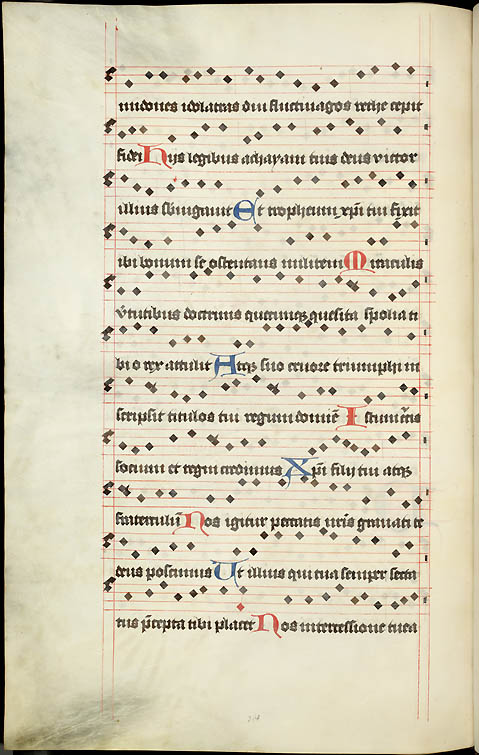 midones idolatras diu fluctiuagos rethe cepit
fidei Hijs legibus achayam tuis deus victor
illius sbiugauit Et tropheum xpi tui fixit
ibi bonum se ostentans militem Miraculis
v̾tutibus doctrinis quecumqꝫ quesita spolia ti
bi o rex attulit Atqꝫ suo cruore triumphi in
scripsit titulos tui regum domine Is
socium et regni credimus Xpi filij tui atqꝫ
fraterculū Nos igitur peccatis nris grauati te
deus poscimus Ut illius qui tua semper secta
tus p̄cepta tibi placet Nos intercessione tuea